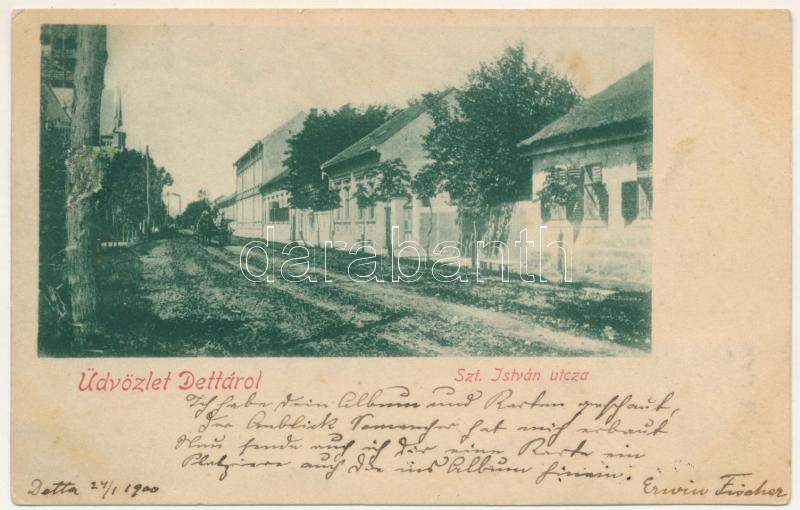 darabanth
Üdvözlet Dettáról
Szt. István utcza
Ich habe dein Album und Karten geschaut,
Der Anblick Mancher hat mich erbaut
Nun sende auch ich dir eine Karte ein
Platziere auch die ins Album hinein.
Detta 24/1 1900
Erwin Fischer